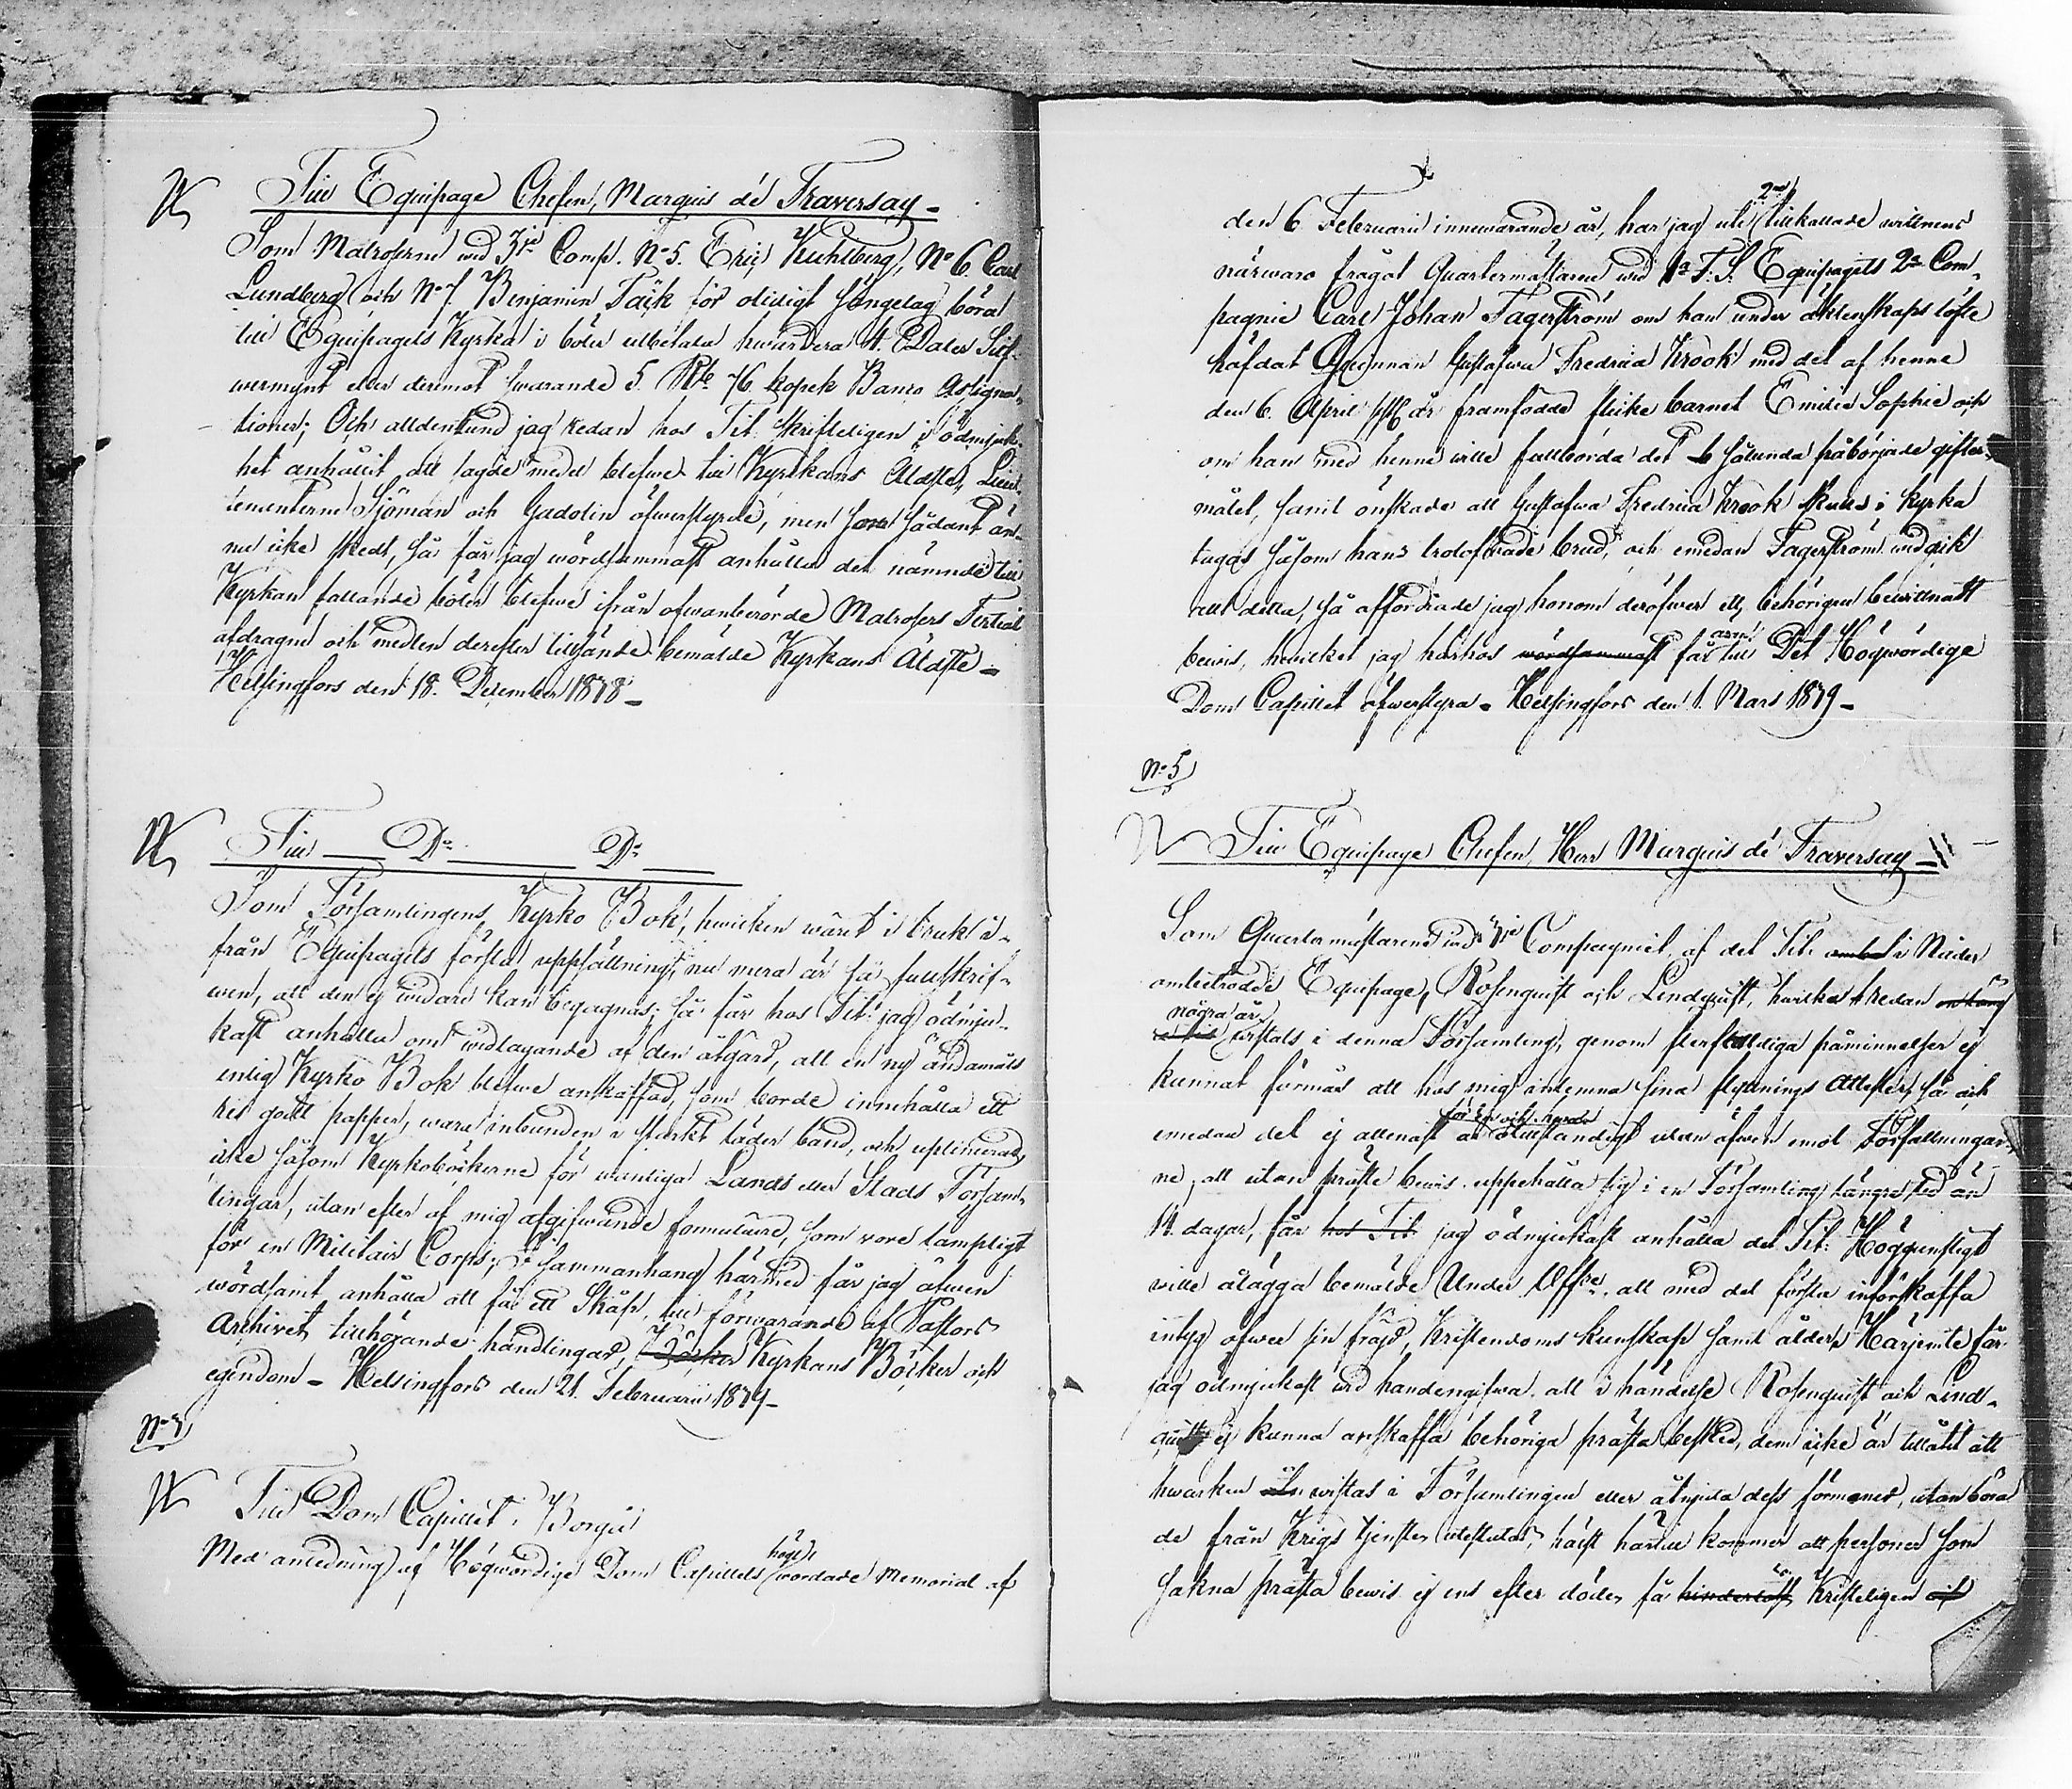 Till Equipage Chefen, Marquis dé Traversay –
Som Matroserne wid 3je Comp. No 5. Eric Kuhlberg, No 6. Carl
Lundberg och No 7. Benjamin Täck för olidigt sängelag böra
till Equipagets Kyrka i böter utbetala hwardera 4. Daler Silf-
wermynt eller deremot swarande 5. Rb 76 kopek Banco Assigna-
tioner; Och alldenstund jag redan hos Tit. skrifteligen i ödmjuk-
het anhållit att sagde medel blefwe till Kyrkans Äldste, Lieut-
tementerne Sjöman och Gadolin öfwerstyrde, men som sådant än-
nu icke skedt, så får jag wördsammast anhålla det nämnde till
Kyrkan fallande böter blefwe ifrån ofwanberörde Matrosers Tertial
afdragne och medlen derefter tillsände bemälde Kyrkans Äldste –
Helsingfors den 18. December 1878 –
Till Do Do
Som Församlingens Kyrko Bok, hwilken warit i bruk i-
från Equipagets första uppsättning, nu mera är så fullskrif-
wen, att den ej widare kan begagnas; så får hos Tit: jag ödmju-
kast anhålla om widtagande af den åtgärd, att en ny ändamåls
enlig Kyrko Bok blefwe anskaffad, som borde innehålla ett
ris godt papper, wara inbunden i starkt läder band, och uplinierad
icke såsom Kyrkoböckerne för wanliga Lands eller Stads Försam-
lingar, utan efter af mig afgifwande formulaire, som vore lämpligt
för en Militair Corps; I sammanhang härmed får jag äfwen
wördsamt anhålla att få ett Skåp, till förwarande af Pastors
Archivet tillhörande handlingar, Böcker Kyrkans Böcker och
egendom – Helsingfors den 21. Februarii 1879 –
Till Dom Capitlet i Borgå
Med anledning af Högwördige Dom Capitlets högt wördade Memorial af
den 6. Februarii innewarande år, har jag uti 2ne tillkallade wittnens
närwaro frågat Quartermästaren wid 1a F. S. Equipagets 2a Com-
pagnie Carl Johan Fagerström om han under äktenskaps löfte
häfdat Qwinnan Gustafwa Fredrica Krook med det af henne
den 6. April år framfödde flicke barnet Emilie Sophie och
om han med henne wille fullborda det sålunda påbörjade gifter-
målet, samt önskade att Gustafwa Fredrica Krook skulle i kyrka
tagas såsom hans trolofwade brud, och emedan Fagerström widgik
allt detta, så affordrade jag honom deröfwer ett behörigen bewittnadt
bewis, hwilket jag härhos wördsammast får till Det Högwördige
Dom Capitlet öfwerstyra – Helsingfors den 1. Mars 1879 –
No 5
Till Equipage Chefen, Herr Marquis dé Traversay –
Som Quartermästarene wid Compagniet af det Tit. i Nåder
ombetrodde Equipage, Rosenquist och Lindquist, hwilka redan
några år wistats i denna Församling, genom flerfalldiga påminnelser ej
kunnat förmås att hos mig inlemna sina flyttnings Attester, så och
emedan det ej allenast är otillständigt utan äfwen emot Författningar-
ne, att utan präste bewis uppehålla sig i en Församling längre tid än
14. dagar, får hos Tit. jag ödmjukast anhålla det Tit: Höggunstigt
wille ålägga bemälde Under Offre, att med det första införskaffa
intyg öfwer sin frejd, Kristendoms kunskap samt ålder. Härjemte får
jag ödmjukast wid handengifwa, att i händelse Rosenquist och Lind-
quist ej kunna anskaffa behöriga prästa besked, dem icke är tillåtit att
hwarken wistas i Församlingen eller åtnjuta dess förmoner, utan böra
de från Krigs tjensten uteslutas, hälst härtill kommer att personer som
sakna prästa bewis ej ens efter döden få hinderlöst Kristeligen